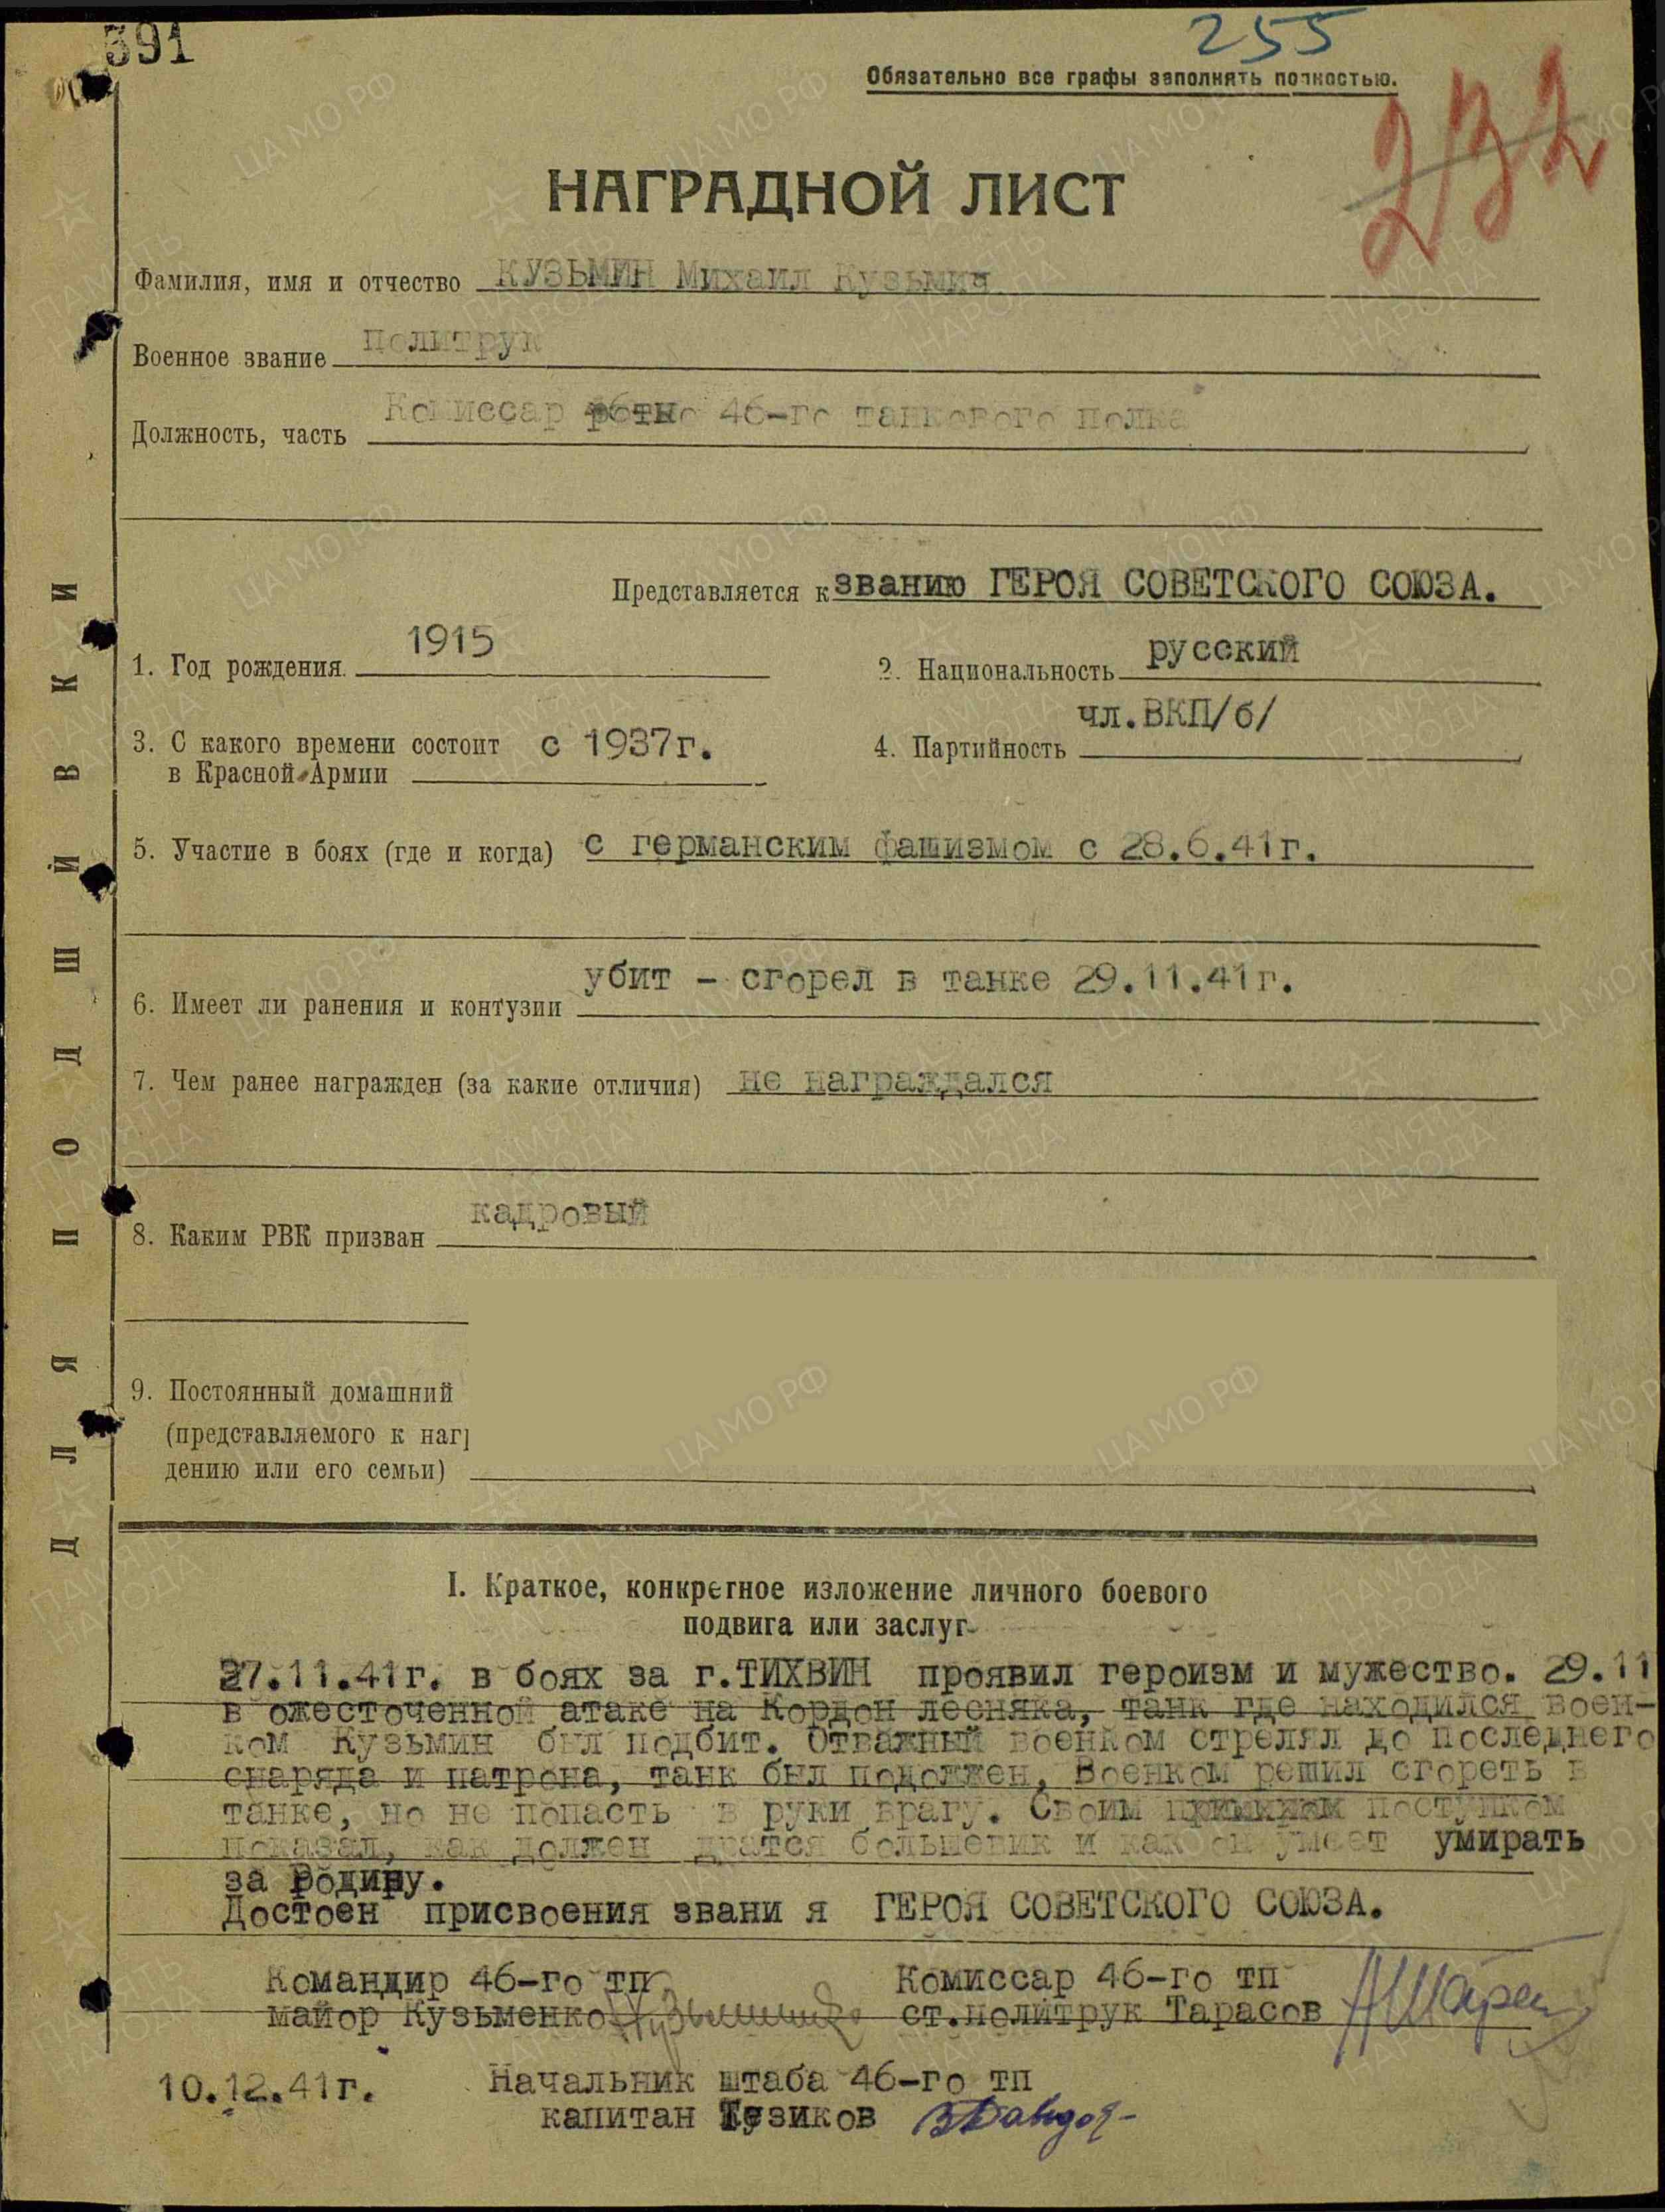 391
255
Обязательно все графы заполнять полностью.
232
НАГРАДНОЙ ЛИСТ
Фамилия, имя и отчество КУЗЬМИН Михаил Кузьмич
Военное звание политрук
Должность, часть Комиссар 46-го танкового полка
Представляется к званию ГЕРОЯ СОВЕТСКОГО СОЮЗА.
1. Год рождения 1915
2. Национальность русский
3. С какого времени состоит с 1937г.
в Красной Армии
4. Партийность чл.ВКП/б/
5. Участие в боях (где и когда) с германским фашизмом с 28.6.41г.
6. Имеет ли ранения и контузии убит - сгорел в танке 29.11.41г.
7. Чем ранее награжден (за какие отличия) не награждался
8. Каким РВК призван кадровый
9. Постоянный домашний
(представляемого к наг
дению или его семьи)
ДЛЯ ПОДШИВКИ
I. Краткое, конкретное изложение личного боевого
подвига или заслуг
27.11.41г. в боях за г.ТИХВИН проявил героизм и мужество. 29.11
в ожесточенной атаке на Кордон лесняка, танк где находился воен-
ком Кузьмин был подбит. Отважный военком стрелял до последнего
снаряда и патрона, танк был подожжен. Военком решил сгореть в
танке, но не попасть в руки врагу. Своим поступком
показал, как должен дратся большевик и как он умеет умирать
за Родину.
Достоен присвоения звани я ГЕРОЯ СОВЕТСКОГО СОЮЗА.
Командир 46-го тп
майор Кузьменко
Комиссар 46-го тп
ст.политрук Тарасов
10.12.41г.
Начальник штаба 46-го тп
капитан Тузиков
ПАМЯТЬ НАРОДА
ЦА МО РФ